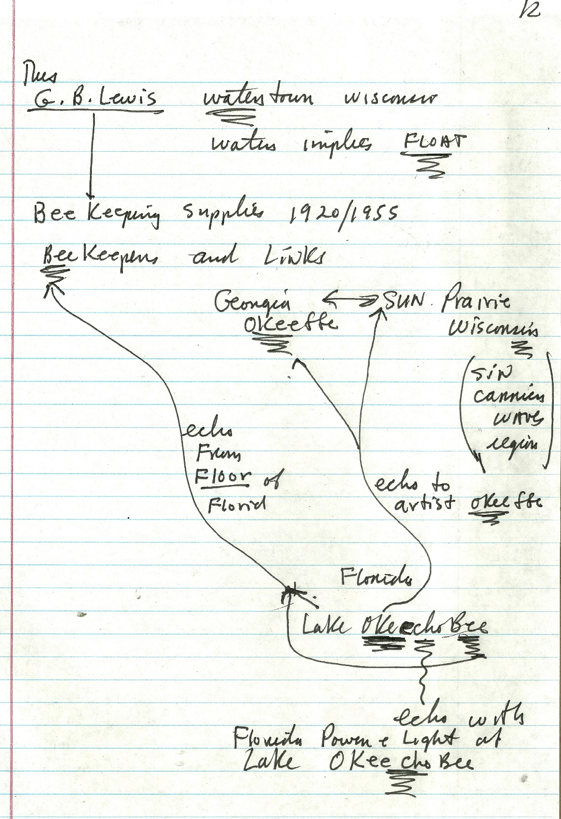 12
Thus
G. B. Lewis waterstown wisconsin
waters implies FLOAT
Bee Keeping Supplies 1920/1955
Bee Keepers and Links
Georgia SUN Prairie
OKeeffe Wisconsin
SIN
carries
wave
region
echo
From
Floor of
Florid
echo to
artist OKeeffe
Florida
Lake OKeechoBee
echo with
Florida Power & Light at
Lake OKeechoBee